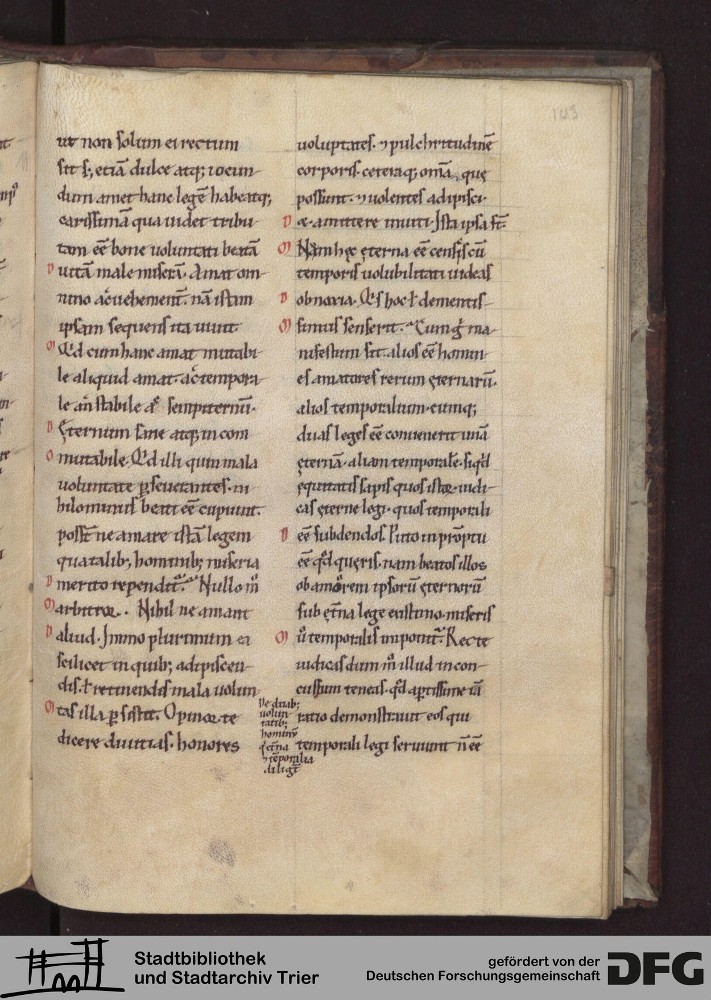 143
ut non solum ei rectum
sit s; etiā dulce atq; iocun-
dum amet hanc legē habeatq;
carissimā qua uidet tribu
tam eē bone uoluntati beatā
D uitam male miserā. Amat om-
nino ac uehement̄. nā istam
ipsam sequens ita uiuit
M Qd cum hanc amat mutabi-
le aliquid amat. ac tempora-
le an stabile ac sempiternū.
D Ęternum sane atq; in com
M mutabile. Qd illi qui in mala
uoluntate pseuerantes. ni-
hilominus beati eē cupiunt.
posst̄ ne amare istā legem
qua talib; hominib; miseria
D merito rependit̄. Nullo m̄
M arbitror. Nihil ne amant
D aliud. Immo plurimum ea
scilicet in quib; adipiscen-
dis. ł retinendis mala uolun-
M tas illa psistit. Opinor te
dicere diuitias. honores
uoluptates. ⁊ pulchritudinē
corporis. ceteraq; omīa. quę
possunt. ⁊ uolentes adipisci.
D & amittere inuiti. Ista ipsa st̄.
M Nam hęc ęterna eē censes cū
temporis uolubilitati uideas
D obnoxia. Qis hoc ł dementis-
M simus senserit. Cum g̊ ma-
nifestum sit. alios eē homin-
es amatores rerum ęternarū.
alios temporalium. cumq;
duas leges eē conuenerit unā
ęternā. aliam temporalē. si qd
ęquitatis sapis quos istor iudi-
cas ęterne legi. quos temporali
D eē subdendos. Puto in prōptu
eē qd queris. nam beatos illos
ob amorem ipsorū ęternorū
sub ęt̄na lege existimo. miseris
M ů temporalis imponit̄. Recte
iudicas dum m̊ illud incon-
cussum teneas. qd aptissime iā
ratio demonstrauit eos qui
temporali legi seruiunt n̄ eē
De duab;
uolun
tatib;
hominū
q̄ ęt̄na
⁊ tēporalia
diligt̄
Stadtbibliothek
und Stadtarchiv Trier
gefördert von der
Deutschen Forschungsgemeinschaft
DFG